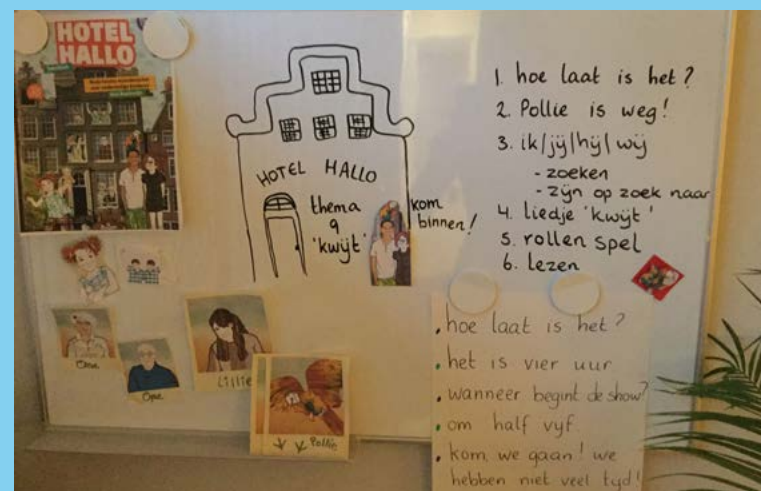 HOTEL
HALLO
HOTEL HALLO
thema
9
'kwijt'
kom
binnen!
1. hoe laat is het?
2. Pollie is weg!
3. ik/jij/hij/wij
- zoeken
- zijn op zoek naar
4. liedje 'kwijt'
5. rollen spel
6. lezen
Oma
Opa
Lillie
Pollie
• hoe laat is het?
• het is vier uur
• wanneer begint de show?
• om half vijf.
• kom, we gaan! we
hebben niet veel tijd!